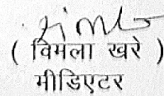 ( विमला खरे )
मीडिएटर